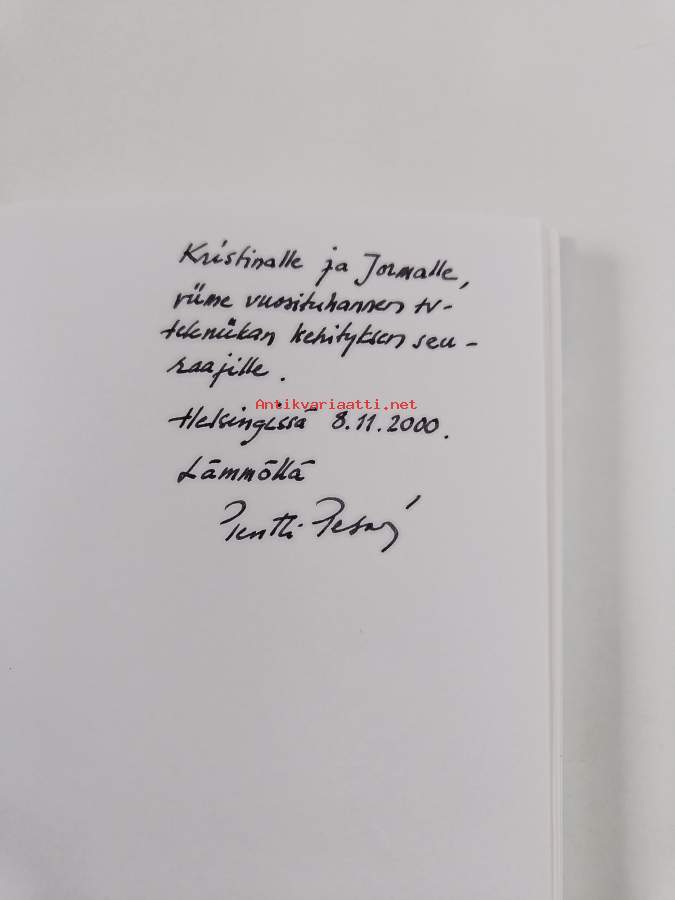 Kristinalle ja Jormalle,
viime vuosituhannen tv-
tekniikan kehityksen seu-
raajille.
Antikvariaatti.net
Helsingissä 8.11.2000.
Lämmöllä
Pentti